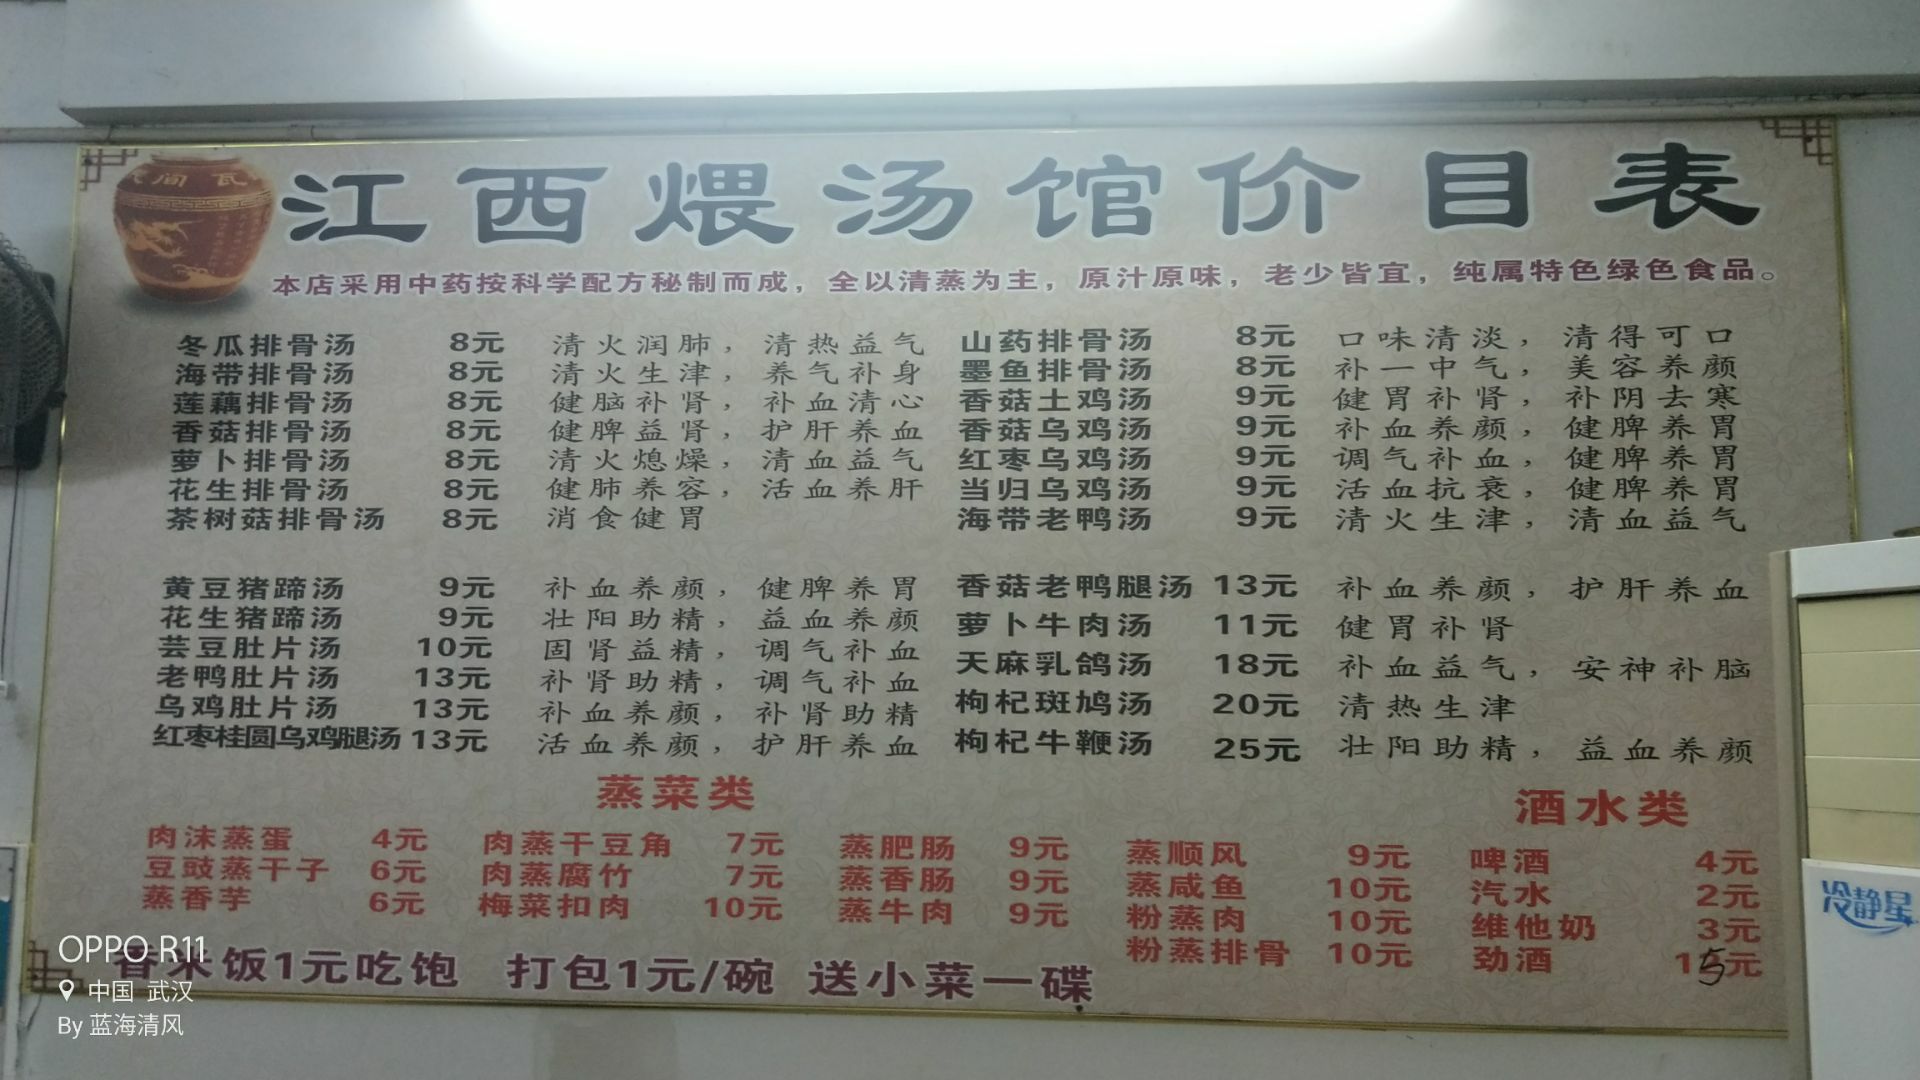 民间瓦
江西煨汤馆价目表
本店采用中药按科学配方秘制而成，全以清蒸为主，原汁原味，老少皆宜，纯属特色绿色食品。
冬瓜排骨汤 8元 清火润肺，清热益气
海带排骨汤 8元 清火生津，养气补身
莲藕排骨汤 8元 健脑补肾，补血清心
香菇排骨汤 8元 健脾益肾，护肝养血
萝卜排骨汤 8元 清火熄燥，清血益气
花生排骨汤 8元 健肺养容，活血养肝
茶树菇排骨汤 8元 消食健胃
山药排骨汤 8元 口味清淡，清得可口
墨鱼排骨汤 8元 补一中气，美容养颜
香菇土鸡汤 9元 健胃补肾，补阴去寒
香菇乌鸡汤 9元 补血养颜，健脾养胃
红枣乌鸡汤 9元 调气补血，健脾养胃
当归乌鸡汤 9元 活血抗衰，健脾养胃
海带老鸭汤 9元 清火生津，清血益气
黄豆猪蹄汤 9元 补血养颜，健脾养胃
花生猪蹄汤 9元 壮阳助精，益血养颜
芸豆肚片汤 10元 固肾益精，调气补血
老鸭肚片汤 13元 补肾助精，调气补血
乌鸡肚片汤 13元 补血养颜，补肾助精
红枣桂圆乌鸡腿汤 13元 活血养颜，护肝养血
香菇老鸭腿汤 13元 补血养颜，护肝养血
萝卜牛肉汤 11元 健胃补肾
天麻乳鸽汤 18元 补血益气，安神补脑
枸杞斑鸠汤 20元 清热生津
枸杞牛鞭汤 25元 壮阳助精，益血养颜
蒸菜类
肉沫蒸蛋 4元
豆豉蒸干子 6元
蒸香芋 6元
肉蒸干豆角 7元
肉蒸腐竹 7元
梅菜扣肉 10元
蒸肥肠 9元
蒸香肠 9元
蒸牛肉 9元
蒸顺风 9元
蒸咸鱼 10元
粉蒸肉 10元
粉蒸排骨 10元
酒水类
啤酒 4元
汽水 2元
维他奶 3元
劲酒 15元
香米饭1元吃饱 打包1元/碗 送小菜一碟
冷静星
OPPO R11
中国 武汉
By 蓝海清风